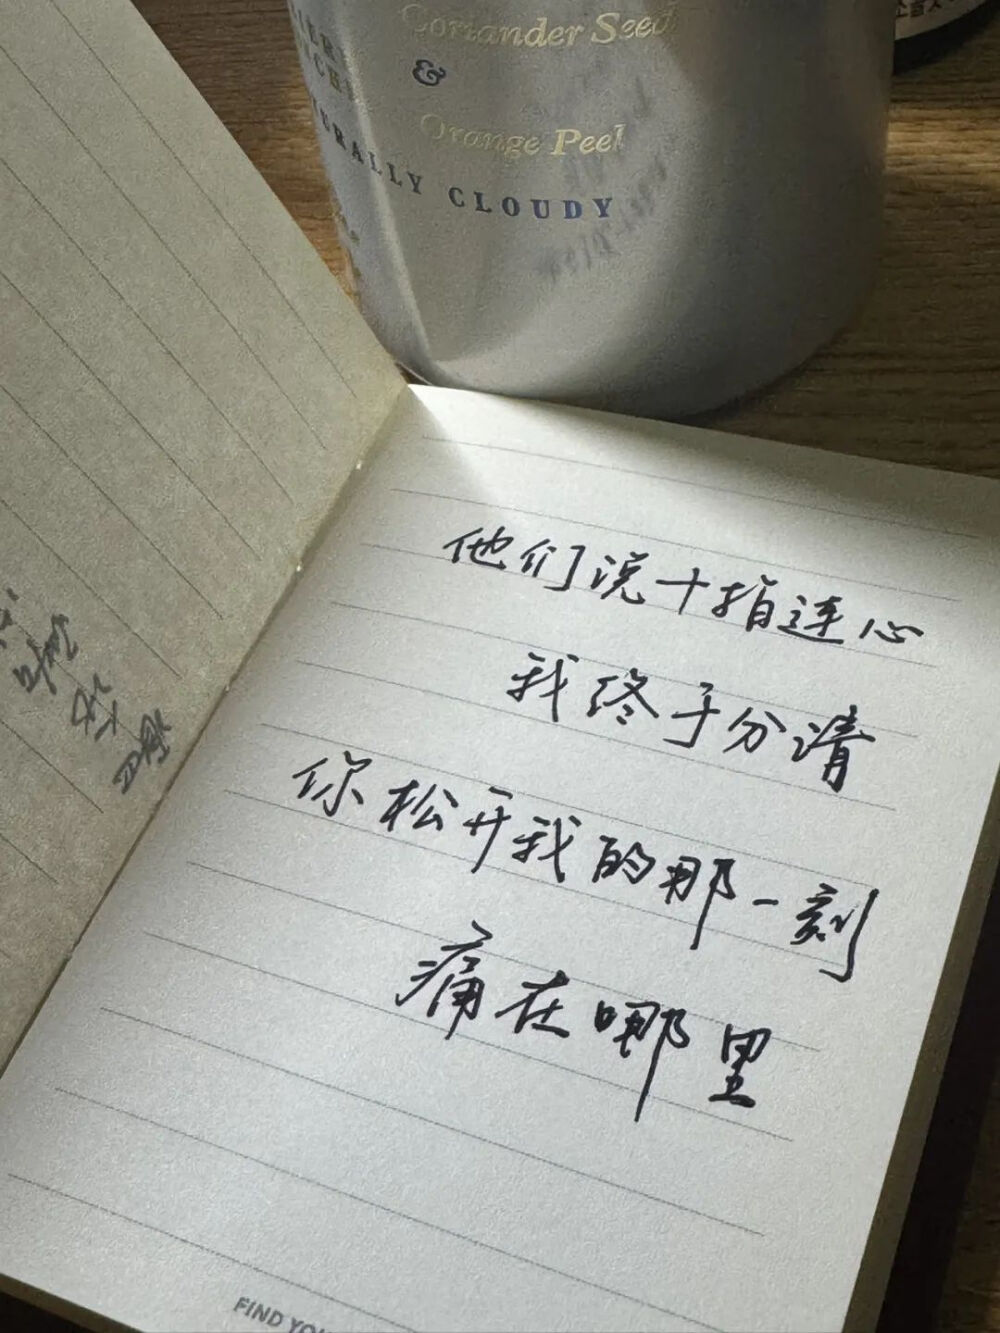 Coriander Seed
&
Orange Peel
RALLY CLOUDY
他们说十指连心
我终于分清
你松开我的那一刻
痛在哪里
FIND YOU